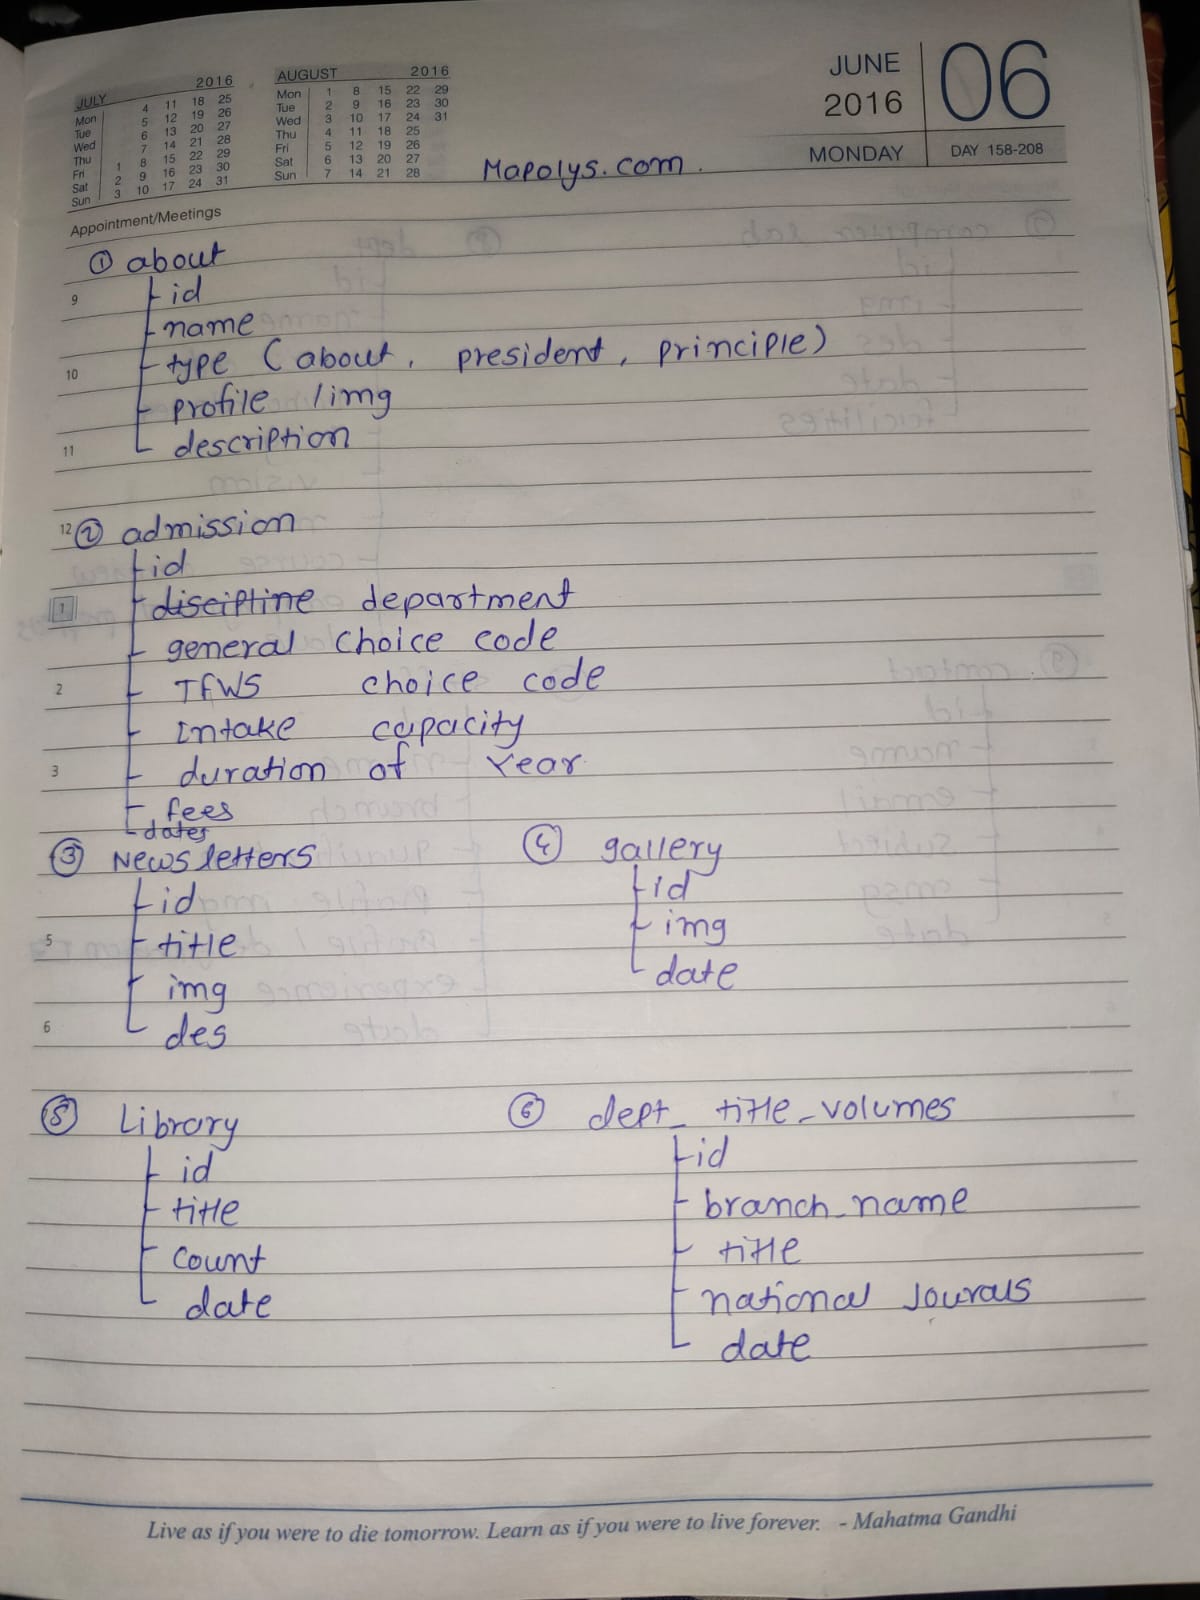 JULY 2016
Mon 4 11 18 25
Tue 5 12 19 26
Wed 6 13 20 27
Thu 7 14 21 28
Fri 1 8 15 22 29
Sat 2 9 16 23 30
Sun 3 10 17 24 31
AUGUST 2016
Mon 1 8 15 22 29
Tue 2 9 16 23 30
Wed 3 10 17 24 31
Thu 4 11 18 25
Fri 5 12 19 26
Sat 6 13 20 27
Sun 7 14 21 28
JUNE 06
2016
MONDAY DAY 158-208
Mapolys.com.
Appointment/Meetings
① about
9 id
name
10 type (about, president, principle)
profile /img
11 description
12 ② admission
id
1 disciptine department
general choice code
2 TFWS choice code
Intake capacity
3 duration of Year
fees
dates
③ News letters
id
5 title
img
6 des
④ gallery
id
img
date
⑤ Library
id
title
count
date
⑥ dept_title_volumes
id
branch_name
title
national Jourals
date
Live as if you were to die tomorrow. Learn as if you were to live forever. - Mahatma Gandhi